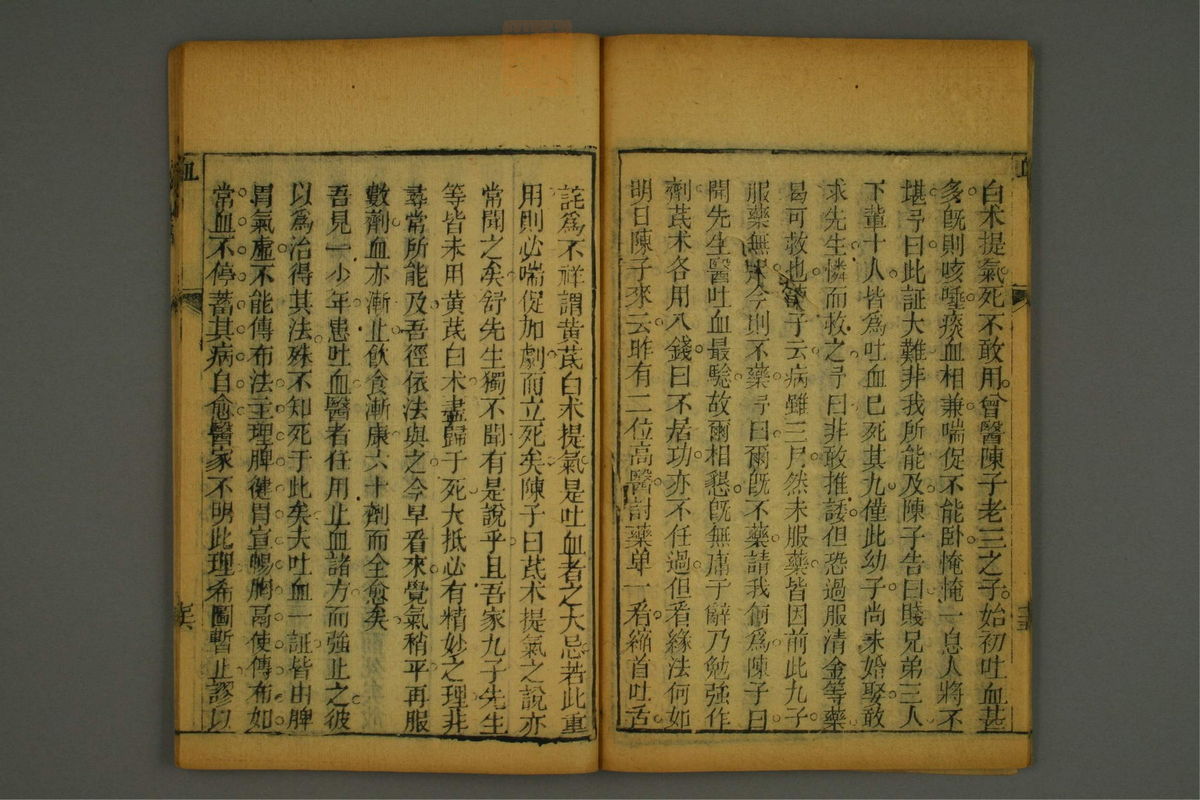 白朮提氣死不敢用曾醫陳子老三之子始初吐血甚
多既則咳唾痰血相兼喘促不能卧掩掩一息人將不
堪予曰此証大難非我所能及陳子告曰賤兄弟三人
下輩十人皆爲吐血巳死其九僅此幼子尚未婚娶敢
求先生憐而救之予曰非敢推諉但恐過服清金等藥
曷可救也陳子云病雖三月然未服藥皆因前此九子
服藥無今則不藥予曰爾既不藥請我何爲陳子曰
聞先生醫吐血最騐故爾相懇既無庸于辭乃勉強作
劑芪朮各用八錢曰不居功亦不任過但看緣法何如
明日陳子來云昨有二位高醫討藥单一看縮首吐舌
詫爲不祥謂黄芪白朮提氣是吐血者之大忌若此重
用則必喘促加劇而立死矣陳子曰芪朮提氣之說亦
常聞之矣舒先生獨不聞有是說乎且吾家九子先生
等皆未用黄芪白朮盡歸于死大抵必有精妙之理非
尋常所能及吾徑依法與之今早看來覺氣稍平再服
數劑血亦漸止飲食漸康六十劑而全愈矣
吾見一少年患吐血醫者任用止血諸方而強止之彼
以爲治得其法殊不知死于此矣夫吐血一証皆由脾
胃氣虛不能傳布法主理脾健胃宣暢胸膈使傳布如
常血不停蓄其病自愈醫家不明此理希圖暫止謬以
血